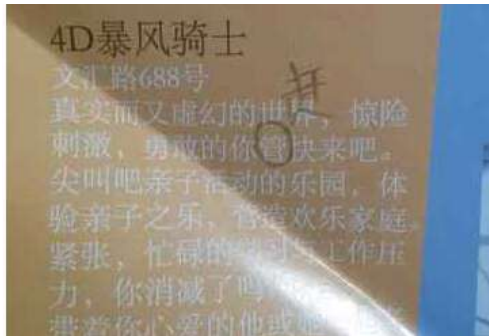 4D暴风骑士
文汇路688号
真实而又虚幻的世界，惊险
赶
刺激，勇敢的你管快来吧。
尖叫吧亲子活动的乐园，体
验亲子之乐，营造欢乐家庭。
紧张，忙碌的学习与工作压
力，你消减了吗
带着你心爱的他或她